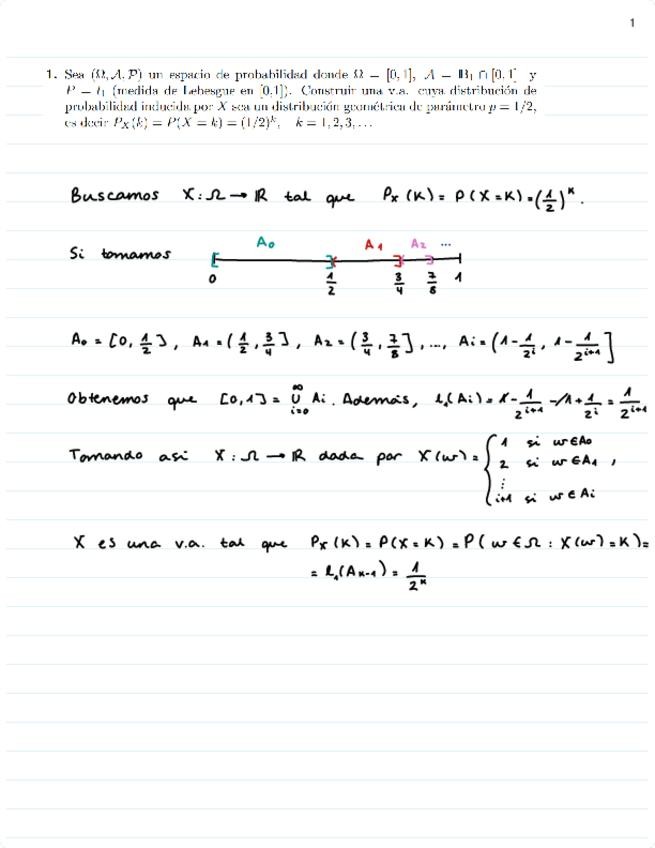 1
1. Sea (Ω, A, P) un espacio de probabilidad donde Ω = [0, 1], A = 𝔹₁ ∩ [0, 1] y
P = ℓ₁ (medida de Lebesgue en [0,1]). Construir una v.a. cuya distribución de
probabilidad inducida por X sea un distribución geométrica de parámetro p = 1/2,
es decir P_X(k) = P(X = k) = (1/2)^k, k = 1, 2, 3, ...
Buscamos X: Ω → ℝ tal que P_X(K) = P(X=K) = (1/2)^K.
A₀ A₁ A₂ ...
Si tomamos
0 1/2 3/4 7/8 1
A₀ = [0, 1/2], A₁ = (1/2, 3/4], A₂ = (3/4, 7/8], ..., Aᵢ = (1 - 1/2^i, 1 - 1/2^(i+1)]
Obtenemos que [0,1] = ∪_{i=0}^∞ Aᵢ. Además, ℓ₁(Aᵢ) = 1 - 1/2^(i+1) - 1 + 1/2^i = 1/2^(i+1)
Tomando asi X: Ω → ℝ dada por X(w) = { 1 si w∈A₀
2 si w∈A₁,
⋮
i+1 si w∈Aᵢ
X es una v.a. tal que P_X(K) = P(X=K) = P(w∈Ω : X(w)=K) =
= ℓ₁(A_{K-1}) = 1/2^K